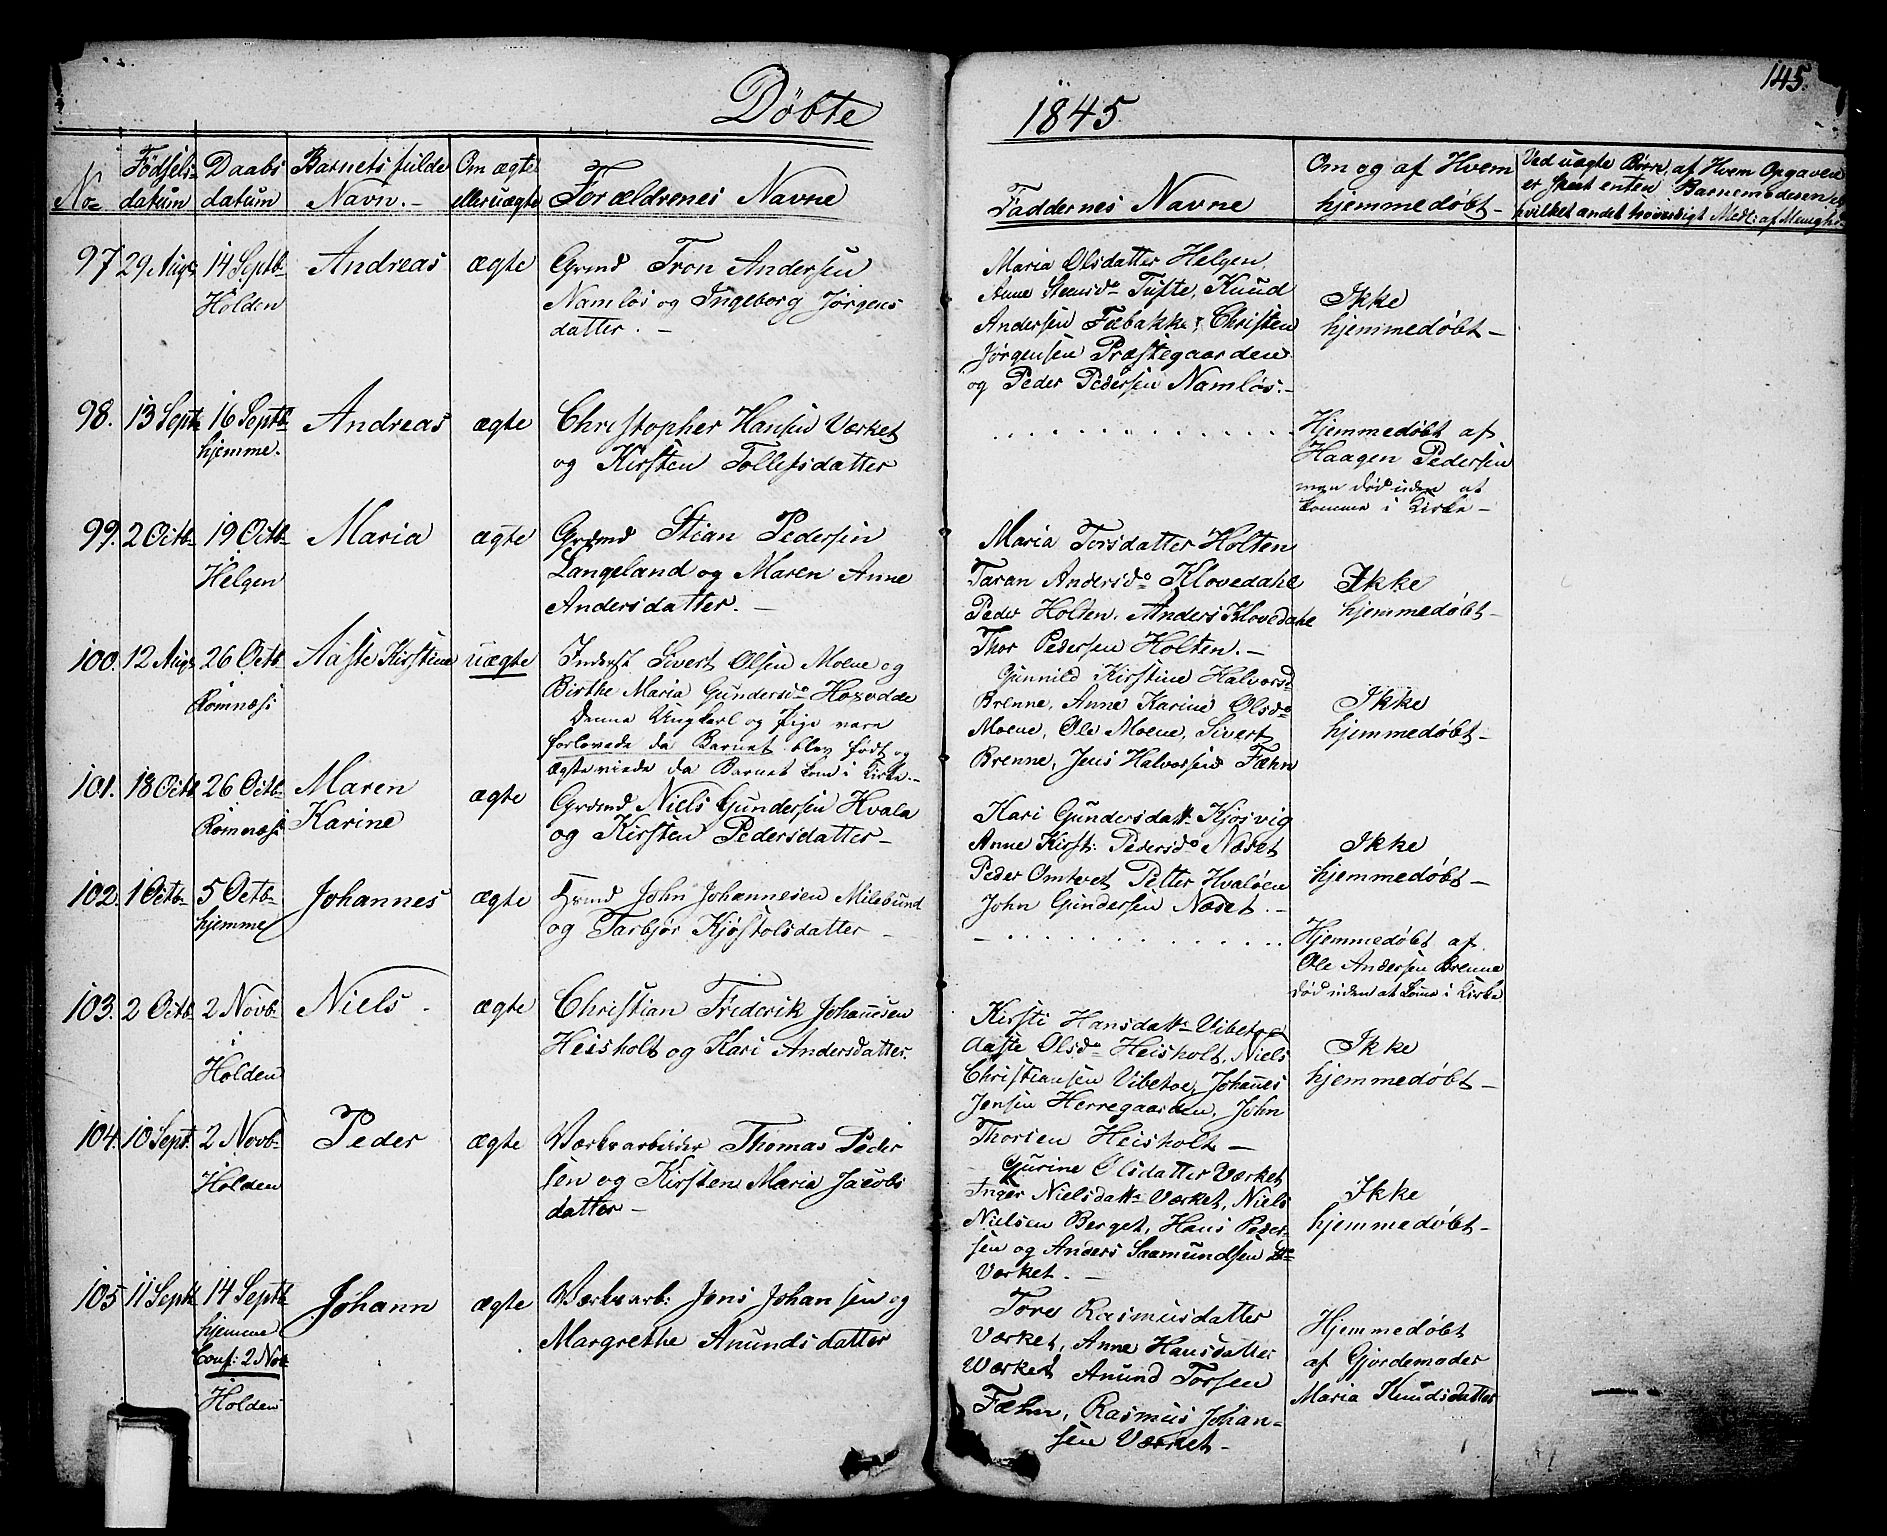 145.
Døbte 1845
No Fødselsdatum Daabsdatum Barnets fulde Navn. Om ægte eller uægte Forældrenes Navne Faddernes Navne Om og af Hvem hjemmedøbt Ved uægte Børn, af Hvem Opgaven er skeet enten Barnemoderen el. hvilket andet troværdigt Medl: af Menigh:
97 29 Aug. 14 Septb. Andreas ægte Grmd Tron Andersen
Holden
Namløs og Ingeborg Jørgens
datter. —
Maria Olsdatter Helgen,
Anne Steensd. Tufte, Knud
Andersen Fæbakke, Christen
Jørgensen Præstegaarden
og Peder Pedersen Namløs. —
Ikke
hjemmedøbt —
98. 13 Sept. 16 Septb. Andreas ægte Christopher Hansen Værket
hjemme.
og Kirsten Tollefsdatter
Hjemmedøbt af
Haagen Pedersen
men død uden at
komme i Kirke —
99. 2 Octb. 19 Octb. Maria ægte Grmd Stian Pedersen
i
Helgen
Langeland og Maren Anne
Andersdatter. —
Maria Torsdatter Holten
Taran Andersd. Klovedahl
Peder Holten, Anders Klovedahl
Thor Pedersen Holten. —
Ikke
hjemmedøbt —
100. 12 Aug. 26 Octb. Aaste Kirstine uægte Inderst Sivert Olsen Moene og
i
Romnæs
Birthe Maria Gundersd.
Denne Ungkarl og Pige vare
forlovede da Barnet blev født og
ægteviede da Barnet kom i Kirke. —
Gunnild Kirstine Halvorsd.
Brenne, Anne Karine Olsd.
Moene, Ole Moene, Sivert
Brenne, Jens Halvorsen Fæhn
Ikke
hjemmedøbt —
101. 18 Octb. 26 Octb. Maren ægte Grmd Niels Gundersen Hvala
i
Romnæs
Karine
og Kirsten Pedersdatter —
Kari Gundersdatt. Kjosvig
Anne Kirst: Pedersd. Næset
Peder Omtvet Petter Hvaløen
John Gundersen Næset. —
Ikke
hjemmedøbt —
102. 1 Octb. 5 Octb. Johannes ægte Grmd John Johannesen Milebund
hjemme
og Tarbjør Kjøstolsdatter —
Hjemmedøbt af
Ole Andersen Brenne
død uden at kome i Kirke
103. 2 Octb. 2 Novb. Niels. ægte Christian Frederik Johannesen
i
Holden
Heisholt og Kari Andersdatter.
Kirsti Hansdatt. Vibetoe
Aaste Olsd. Heisholt, Niels
Christiansen Vibetoe, Johannes
Jensen Herregaarden, John
Thorsen Heisholt —
Ikke
hjemmedøbt —
104. 10 Sept. 2 Novb. Peder ægte Værksarbeider Thomas Peder
i
Holden
sen og Kirsten Maria Jacobs
datter —
Gurine Olsdatter Værket
Inger Nielsdatt. Værket, Niels
Nielsen Berget, Hans Peder-
sen og Anders Saamundsen
Værket. —
Ikke
hjemmedøbt —
105 11 Septb. 14 Septb. Johann ægte Værksarb: Jens Johansen og
hjemme
Conf: 2 Nov.
Holden
Margrethe Anundsdatter
Tore Rasmusdatter
Værket, Anne Hansdatter
Værket Anund Torsen
Fæhn, Rasmus Johan-
sen Værket —
Hjemmedøbt
af Gjordemoder
Maria Knudsdatter